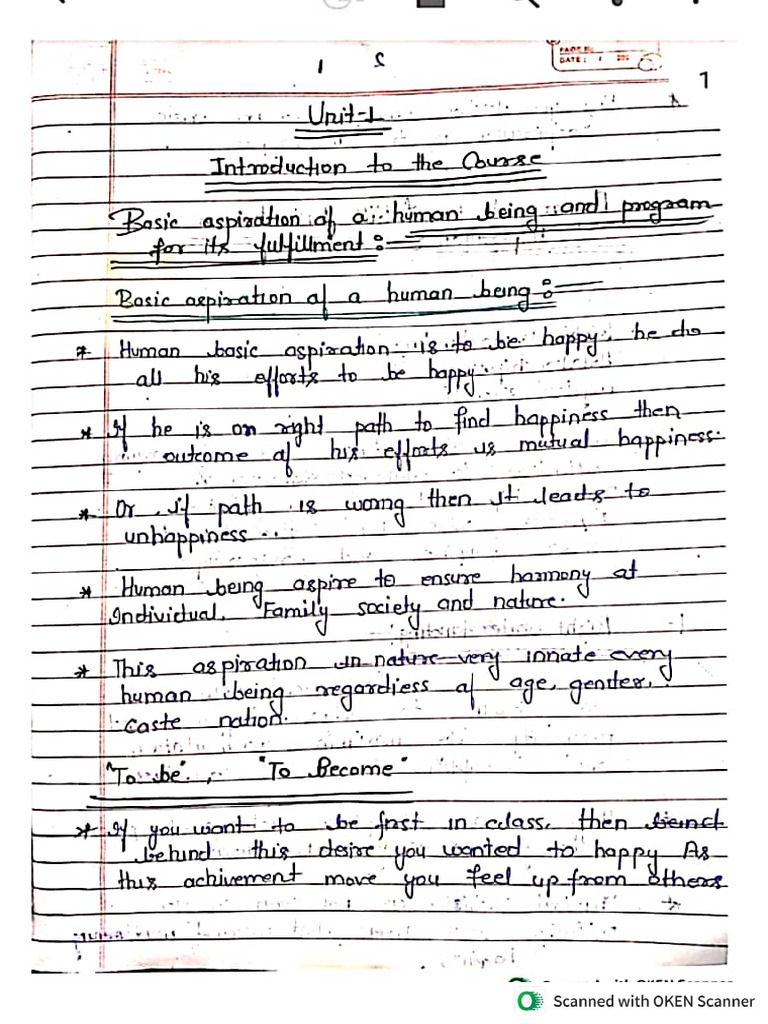 1 S
PAGE No.
DATE: / 200
1
Unit-1
Introduction to the Course
Basic aspiration of a human being and program
for its fulfillment :—
Basic aspiration of a human being :—
* Human basic aspiration is to be happy. he do
all his efforts to be happy.
* If he is on right path to find happiness then
outcome of his efforts is mutual happiness.
* Or, if path is worng then it leads to
unhappiness.
* Human being aspire to ensure harmony at
Individual, Family society and nature.
* This aspiration in nature very innate every
human being regardless of age, gender,
caste nation.
"To be", "To Become"
* If you want to be first in class, then beind
behind this desire you wanted to happy As
this achivement move you feel up from others
Scanned with OKEN Scanner